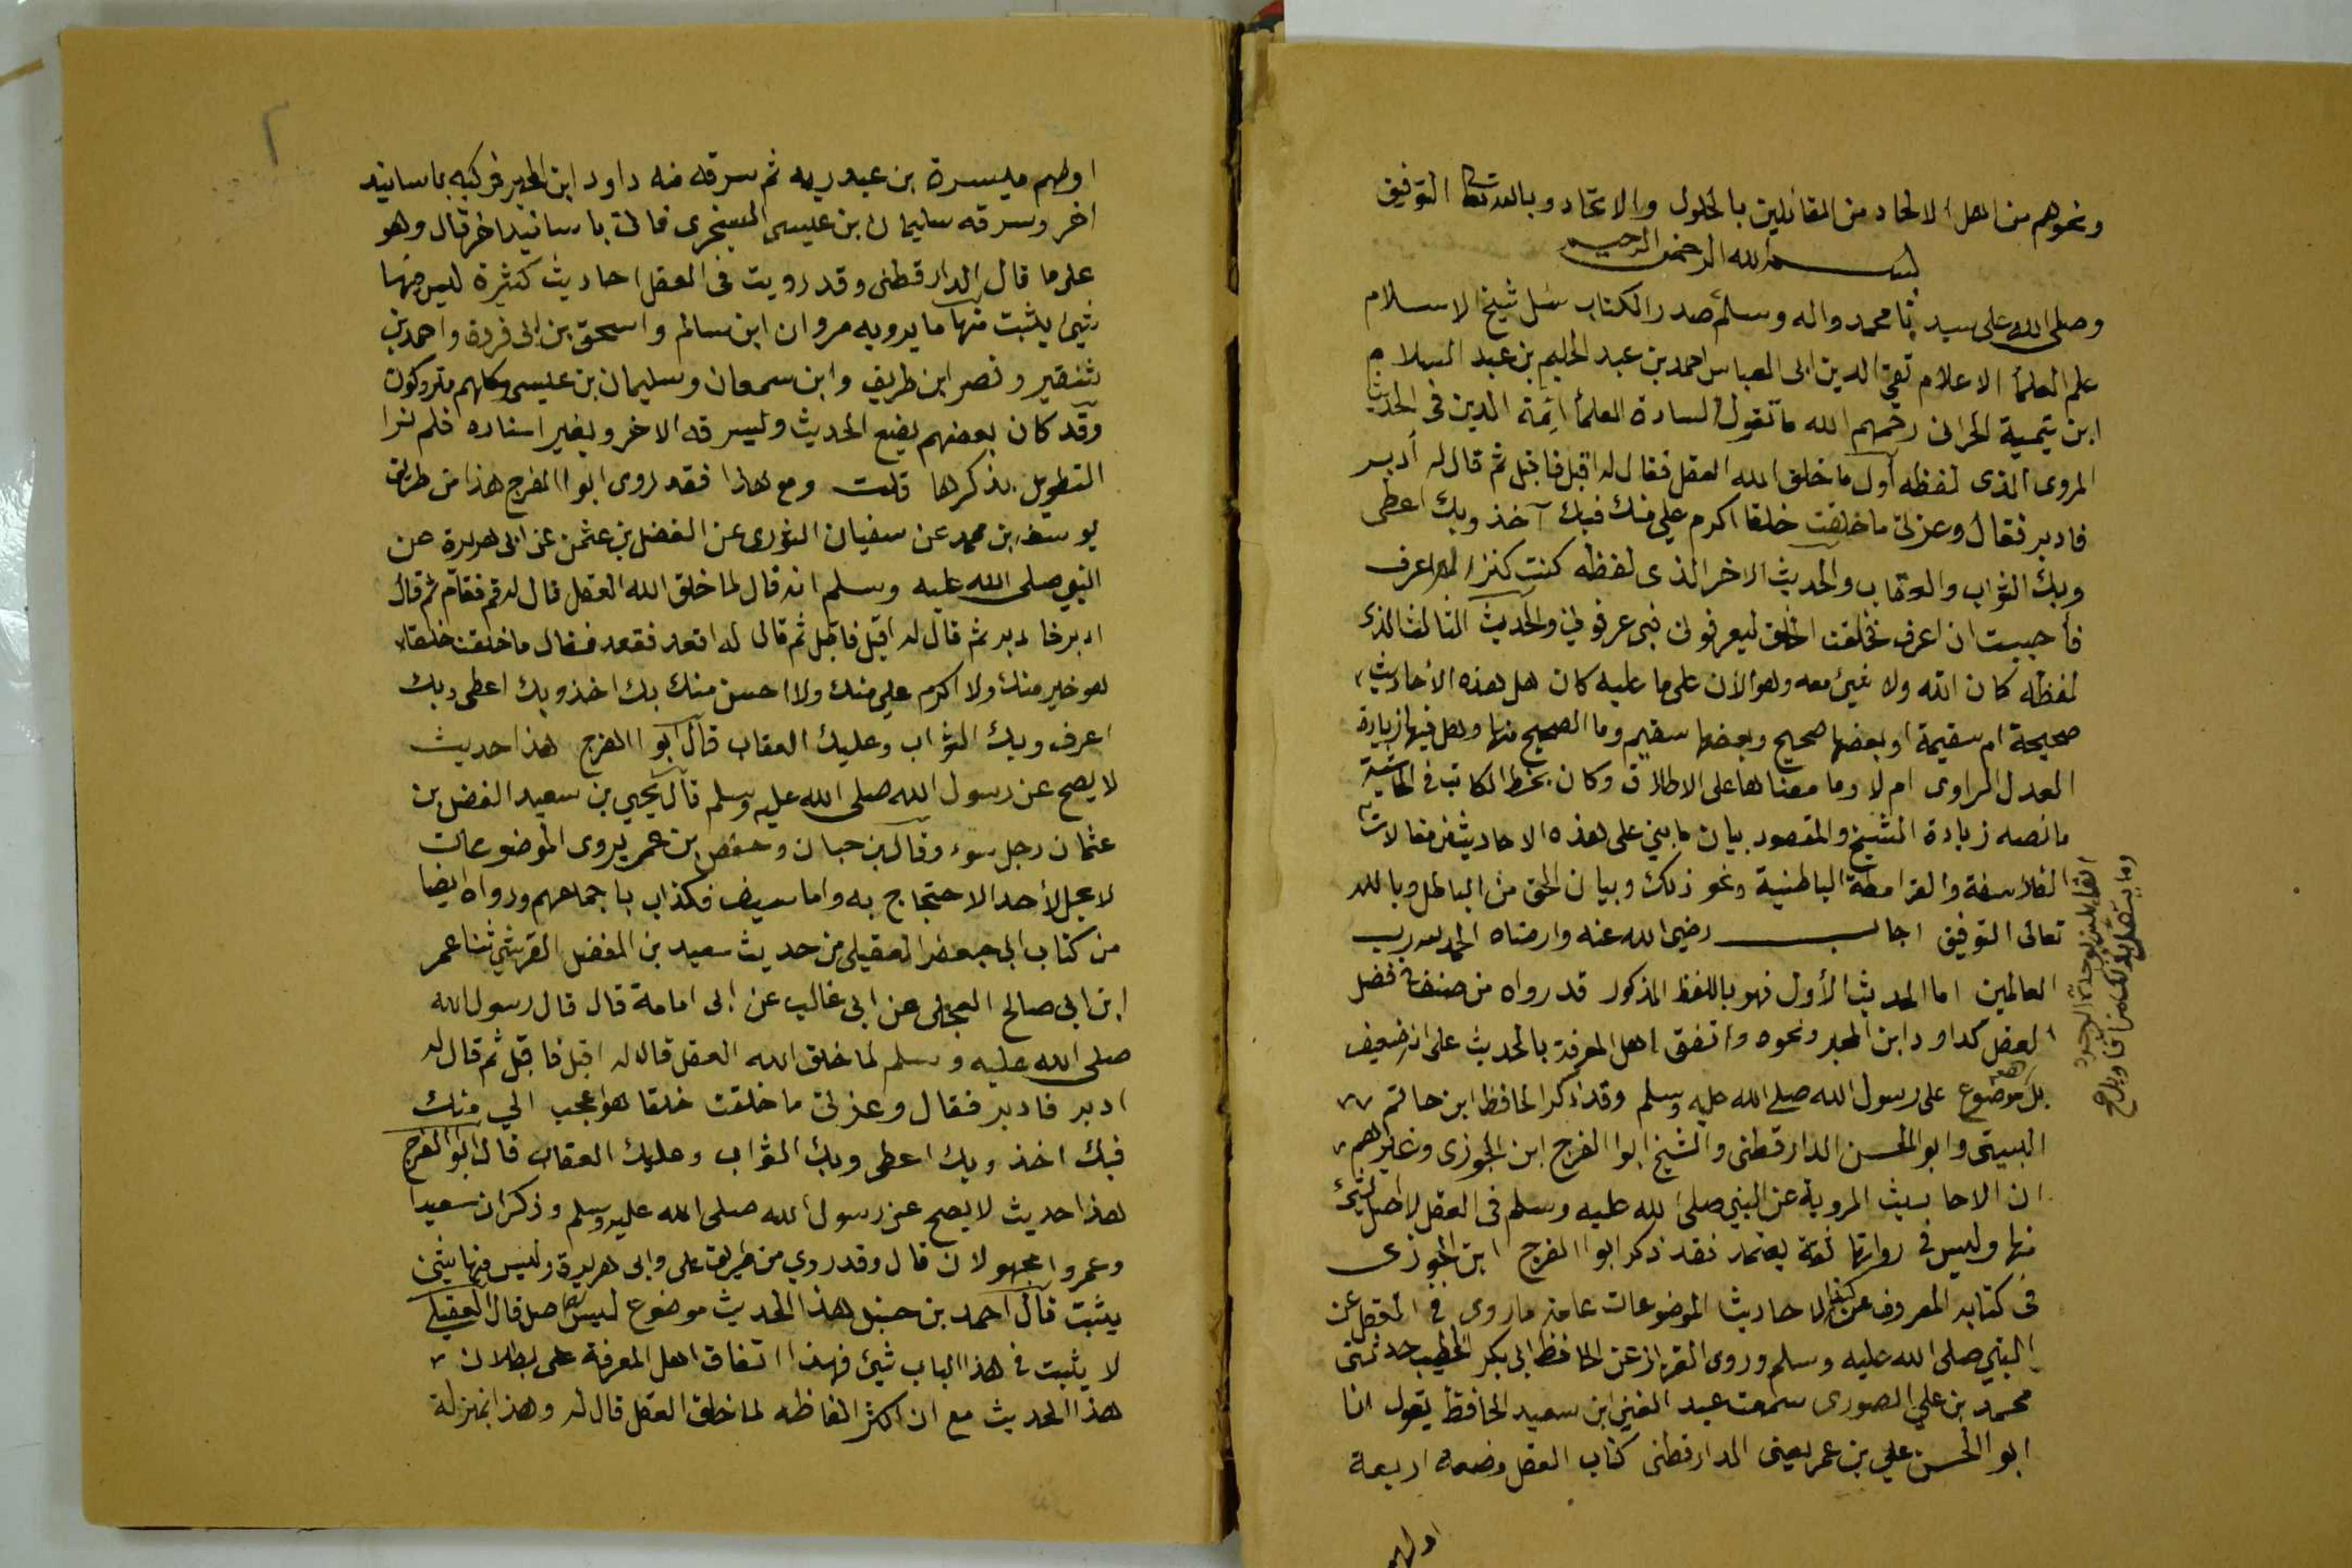 ونحوهم من اهل الالحاد من القائلين بالحلول والاتحاد وبالله تعالى التوفيق
بسم الله الرحمن الرحيم
وصلى الله على سيدنا محمد واله وسلم صدر الكتاب سئل شيخ الاسلام
علم العلمأ الاعلام تقي الدين ابى العباس احمد بن عبد الحليم بن عبد السلام
ابن تيمية الحرانى رحمهم الله ما تقول السادة العلمأ ائمة الدين فى الحديث
المروى الذى لفظه أول ما خلق الله العقل فقال له اقبل فاقبل ثم قال له أدبر
فادبر فقال وعزتى ما خلقت خلقا اكرم علي منك فبك آخذ وبك اعطى
وبك الثواب والعقاب والحديث الاخر الذى لفظه كنت كنزا لا اعرف
فأحببت ان اعرف فخلقت الخلق ليعرفونى فبى عرفونى والحديث الثالث الذى
لفظه كان الله ولا شيئ معه وهو الأن على ما عليه كان هل هذه الأحاديث
صحيحة ام سقيمة او بعضها صحيح وبعضها سقيم وما الصحيح منها وهل فيها زيادة
العدل الراوى ام لا وما معناها على الاطلاق وكان بخط الكاتب فى الحاشية
مانصه زيادة الشيخ والمقصود بيان ما بني على هذه الاحاديث من مقالات
الفلاسفة والقرامطة الباطنية ونحو ذلك وبيان الحق من الباطل وبالله
القائلين بوحدة الوجود
وما يتصل بذلك
تعالى التوفيق اجاب رضي الله عنه وارضاه الحمد لله رب
العالمين اما الحديث الأول فهو باللفظ المذكور قد رواه من صنف فى فضل
العقل كداود ابن المحبر ونحوه واتفق اهل المعرفة بالحديث على انه ضعيف
بل هو موضوع على رسول الله صلى الله عليه وسلم وقد ذكر الحافظ ابن حاتم
البستى وابو الحسن الدارقطنى والشيخ ابوا الفرج ابن الجوزى وغيرهم
ان الاحاديث المروية عن النبي صلى الله عليه وسلم فى العقل لا اصل لشيئ
منها وليس فى رواتها ثقة يعتمد فقد ذكر ابوا الفرج ابن الجوزى
فى كتابه المعروف عن الاحاديث الموضوعات عامة ما روى فى العقل عن
النبي صلى الله عليه وسلم وروى القزاز عن الحافظ ابى بكر الخطيب حدثنى
محمد بن علي الصورى سمعت عبد الغنى ابن سعيد الحافظ يقول انا
ابوا الحسن علي بن عمر يعنى الدارقطنى كتاب العقل وضعه اربعة
اولهم
٢
اولهم ميسرة بن عبد ربه ثم سرقه منه داود ابن المحبر فركبه باسانيد
اخر وسرقه سليمان بن عيسى السنجرى فاتى باسانيد اخر قال وهو
على ما قال الدارقطنى وقد رويت فى العقل احاديث كثيرة ليس فيها
شيئ يثبت منها ما يرويه مروان ابن سالم واسحق بن ابى فروة واحمد بن
بشير ونصر ابن طريف وابن سمعان وسليمان بن عيسى وكلهم متروكون
وقد كان بعضهم يضع الحديث ويسرقه الاخر ويغير اسناده فلم نرا
التطويل بذكرها قلت ومع هذا فقد روى ابوا الفرج هذا من طريق
يوسف بن محمد عن سفيان الثورى عن الفضل بن عثمن عن ابى هريرة عن
النبي صلى الله عليه وسلم انه قال لما خلق الله العقل قال له قم فقام ثم قال
ادبر فادبر ثم قال له اقبل فاقبل ثم قال له اقعد فقعد فقال ما خلقت خلقا
هو خير منك ولا اكرم علي منك ولا احسن منك بك اخذ وبك اعطى وبك
اعرف وبك الثواب وعليك العقاب قال ابوا الفرج هذا حديث
لا يصح عن رسول الله صلى الله عليه وسلم قال يحيى بن سعيد الفضل بن
عثمان رجل سوء وقال بن حبان وحفص بن عمر يروى الموضوعات
لا يحل لأحد الاحتجاج به واما سيف فكذاب باجماعهم ورواه ايضا
من كتاب ابى جعفر العقيلى من حديث سعيد بن الفضل القرشي ثنا عمر
ابن ابى صالح العجلى عن ابى غالب عن ابى امامة قال قال رسول الله
صلى الله عليه وسلم لما خلق الله العقل قال له اقبل فاقبل ثم قال له
ادبر فادبر فقال وعزتى ما خلقت خلقا هو اعجب الي منك
فبك اخذ وبك اعطى وبك الثواب وعليك العقاب قال ابوا الفرج
هذا حديث لا يصح عن رسول الله صلى الله عليه وسلم وذكر ان سعيدا
وعمروا مجهولان قال وقد روي من طريق على وابى هريرة وليس فيها شيئ
يثبت قال احمد بن حنبل هذا الحديث موضوع ليس له اصل قال العقيلى
لا يثبت فى هذا الباب شيئ فهذا اتفاق اهل المعرفة على بطلان
هذا الحديث مع ان اكثر الفاظه لما خلق العقل قال له وهذا بمنزلة